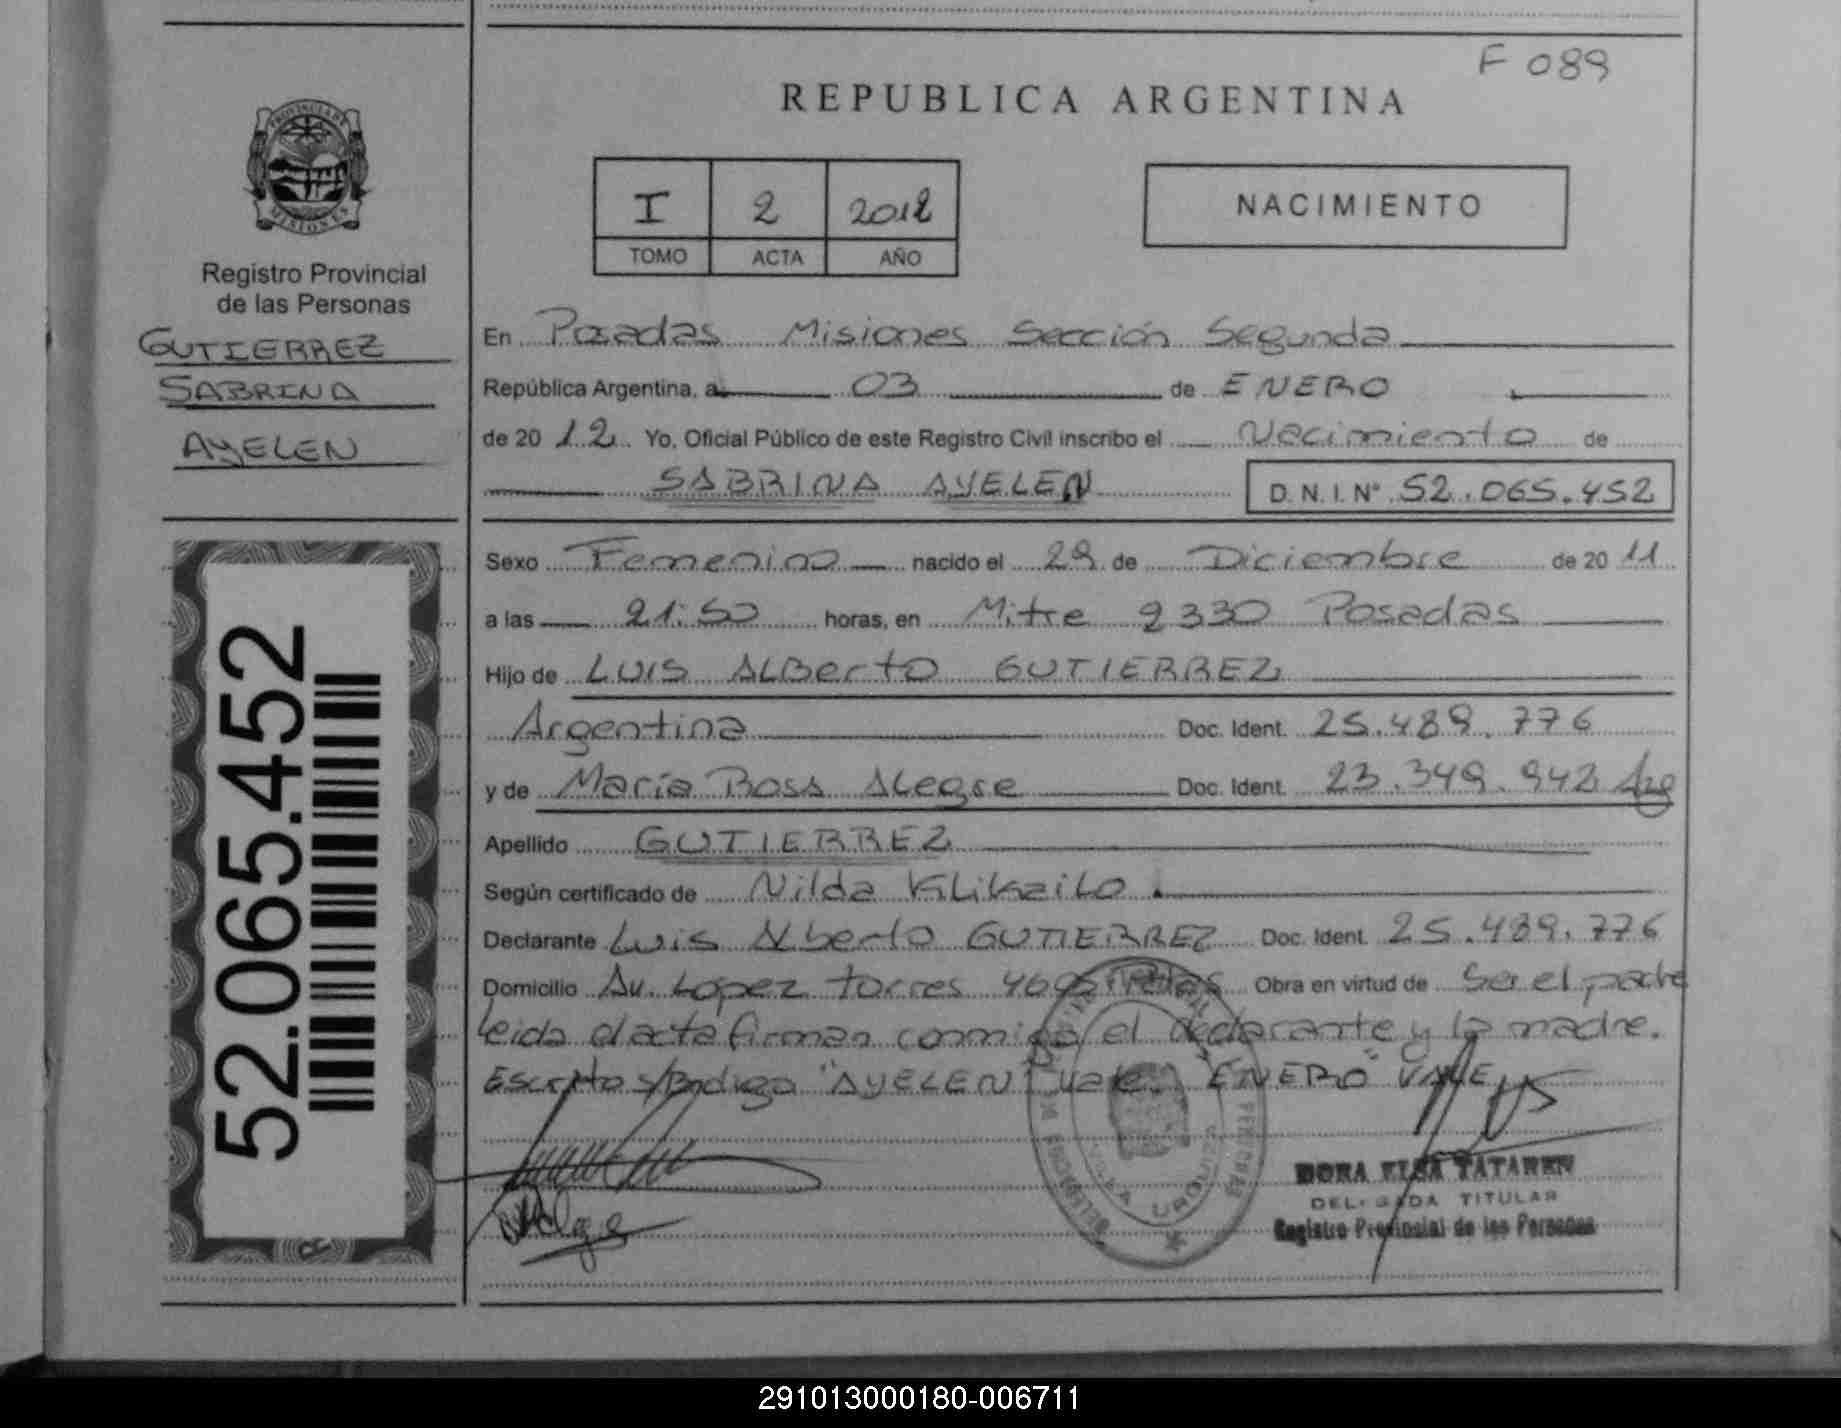 F 089
REPUBLICA ARGENTINA
PROVINCIA DE
MISIONES
Registro Provincial
de las Personas
GUTIERREZ
SABRINA
AYELEN
I 2 2012
TOMO ACTA AÑO
NACIMIENTO
En Posadas Misiones Sección Segunda
República Argentina, a 03 de ENERO
de 2012 Yo, Oficial Público de este Registro Civil inscribo el Nacimiento de
SABRINA AYELEN D. N. I. Nº 52.065.452
52.065.452
Sexo Femenino nacido el 29 de Diciembre de 2011
a las 21:50 horas, en Mitre 2330 Posadas
Hijo de LUIS ALBerto GUTIERREZ
Argentina Doc. Ident. 25.489.776
y de María Rosa Alegre Doc. Ident. 23.349.942 Arg
Apellido GUTIERREZ
Según certificado de Nilda Klikailo
Declarante Luis Alberto GUTIERREZ Doc. Ident. 25.489.776
Domicilio Av. Lopez Torres Obra en virtud de Ser el padre
leida el acta firman conmigo el declarante y la madre.
Escrito s/Borrado "AYELEN" Vale. "ENERO" VALE
DORA ELSA TATAREN
DELEGADA TITULAR
Registro Provincial de las Personas
VILLA URQUIZA
291013000180-006711